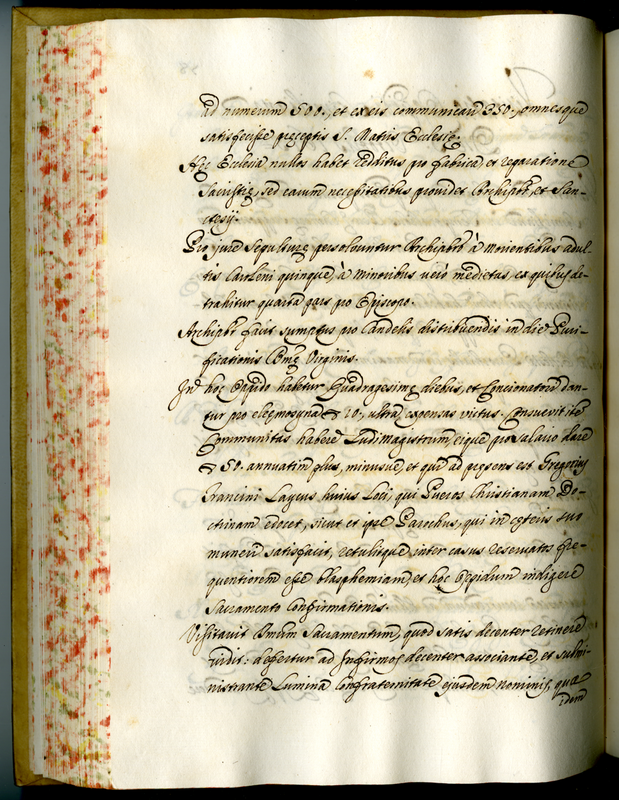 ad numerum 500., et ex eis communicari 350., omnesque
satisfecisse præceptis S. Matris Ecclesiæ.
Hęc Ecclesia nullos habet reditus pro fabrica, et reparatione
Sacristiæ, sed earum necessitatibus providet Archipbr, et San-
ctesij.
Pro jure Sepulturæ persolvuntur Archipbro à morientibus adul-
tis Carleni quinque, à minoribus vero medietas, ex quibus de-
trahitur quarta pars pro Episcopo.
Archipbr facit sumptus pro Candelis distribuendis in die Puri-
ficationis Bmę Virginis.
In hoc Oppido habetur Quadragesimę diebus, et Concionatori dan-
tur pro eleęmosyna 20., ultra expensas victus. Consuevit itē
Communitas habere Ludimagistrum, eique pro salario dare
50. annuatim plus, minusve, et qui ad pręsens est Gregorius
Francini Laycus huius Loci, qui Pueros Christianam Do-
ctrinam edocet, sicut et ipse Parochus, qui in cęteris suo
muneri satisfacit, retulitque inter casus reservatos fre-
quentiorem esse blasphemiam, et hoc Oppidum indigere
Sacramento Confirmationis.
Visitavit Smum Sacramentum, quod satis decenter retineri
vidit: defertur ad Infirmos decenter associante, et submi-
nistrante Lumina Confraternitate ejusdem nominis, quæ
idem